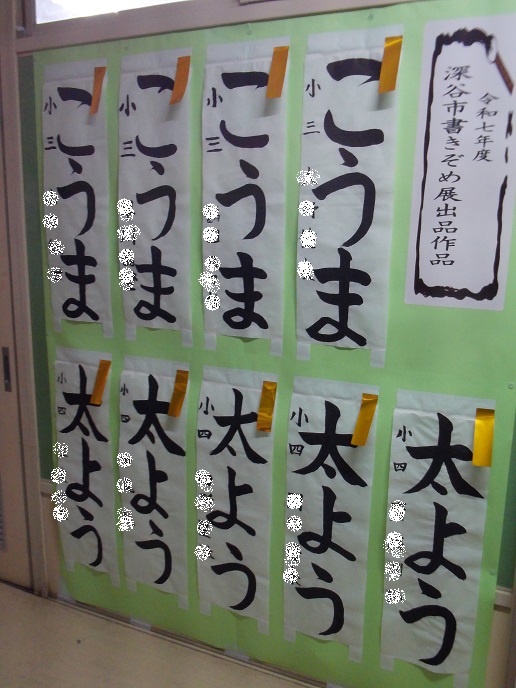 令和七年度
深谷市書きぞめ展出品作品
こうま
小三
こうま
小三
こうま
小三
こうま
小三
太よう
小四
太よう
小四
太よう
小四
太よう
小四
太よう
小四